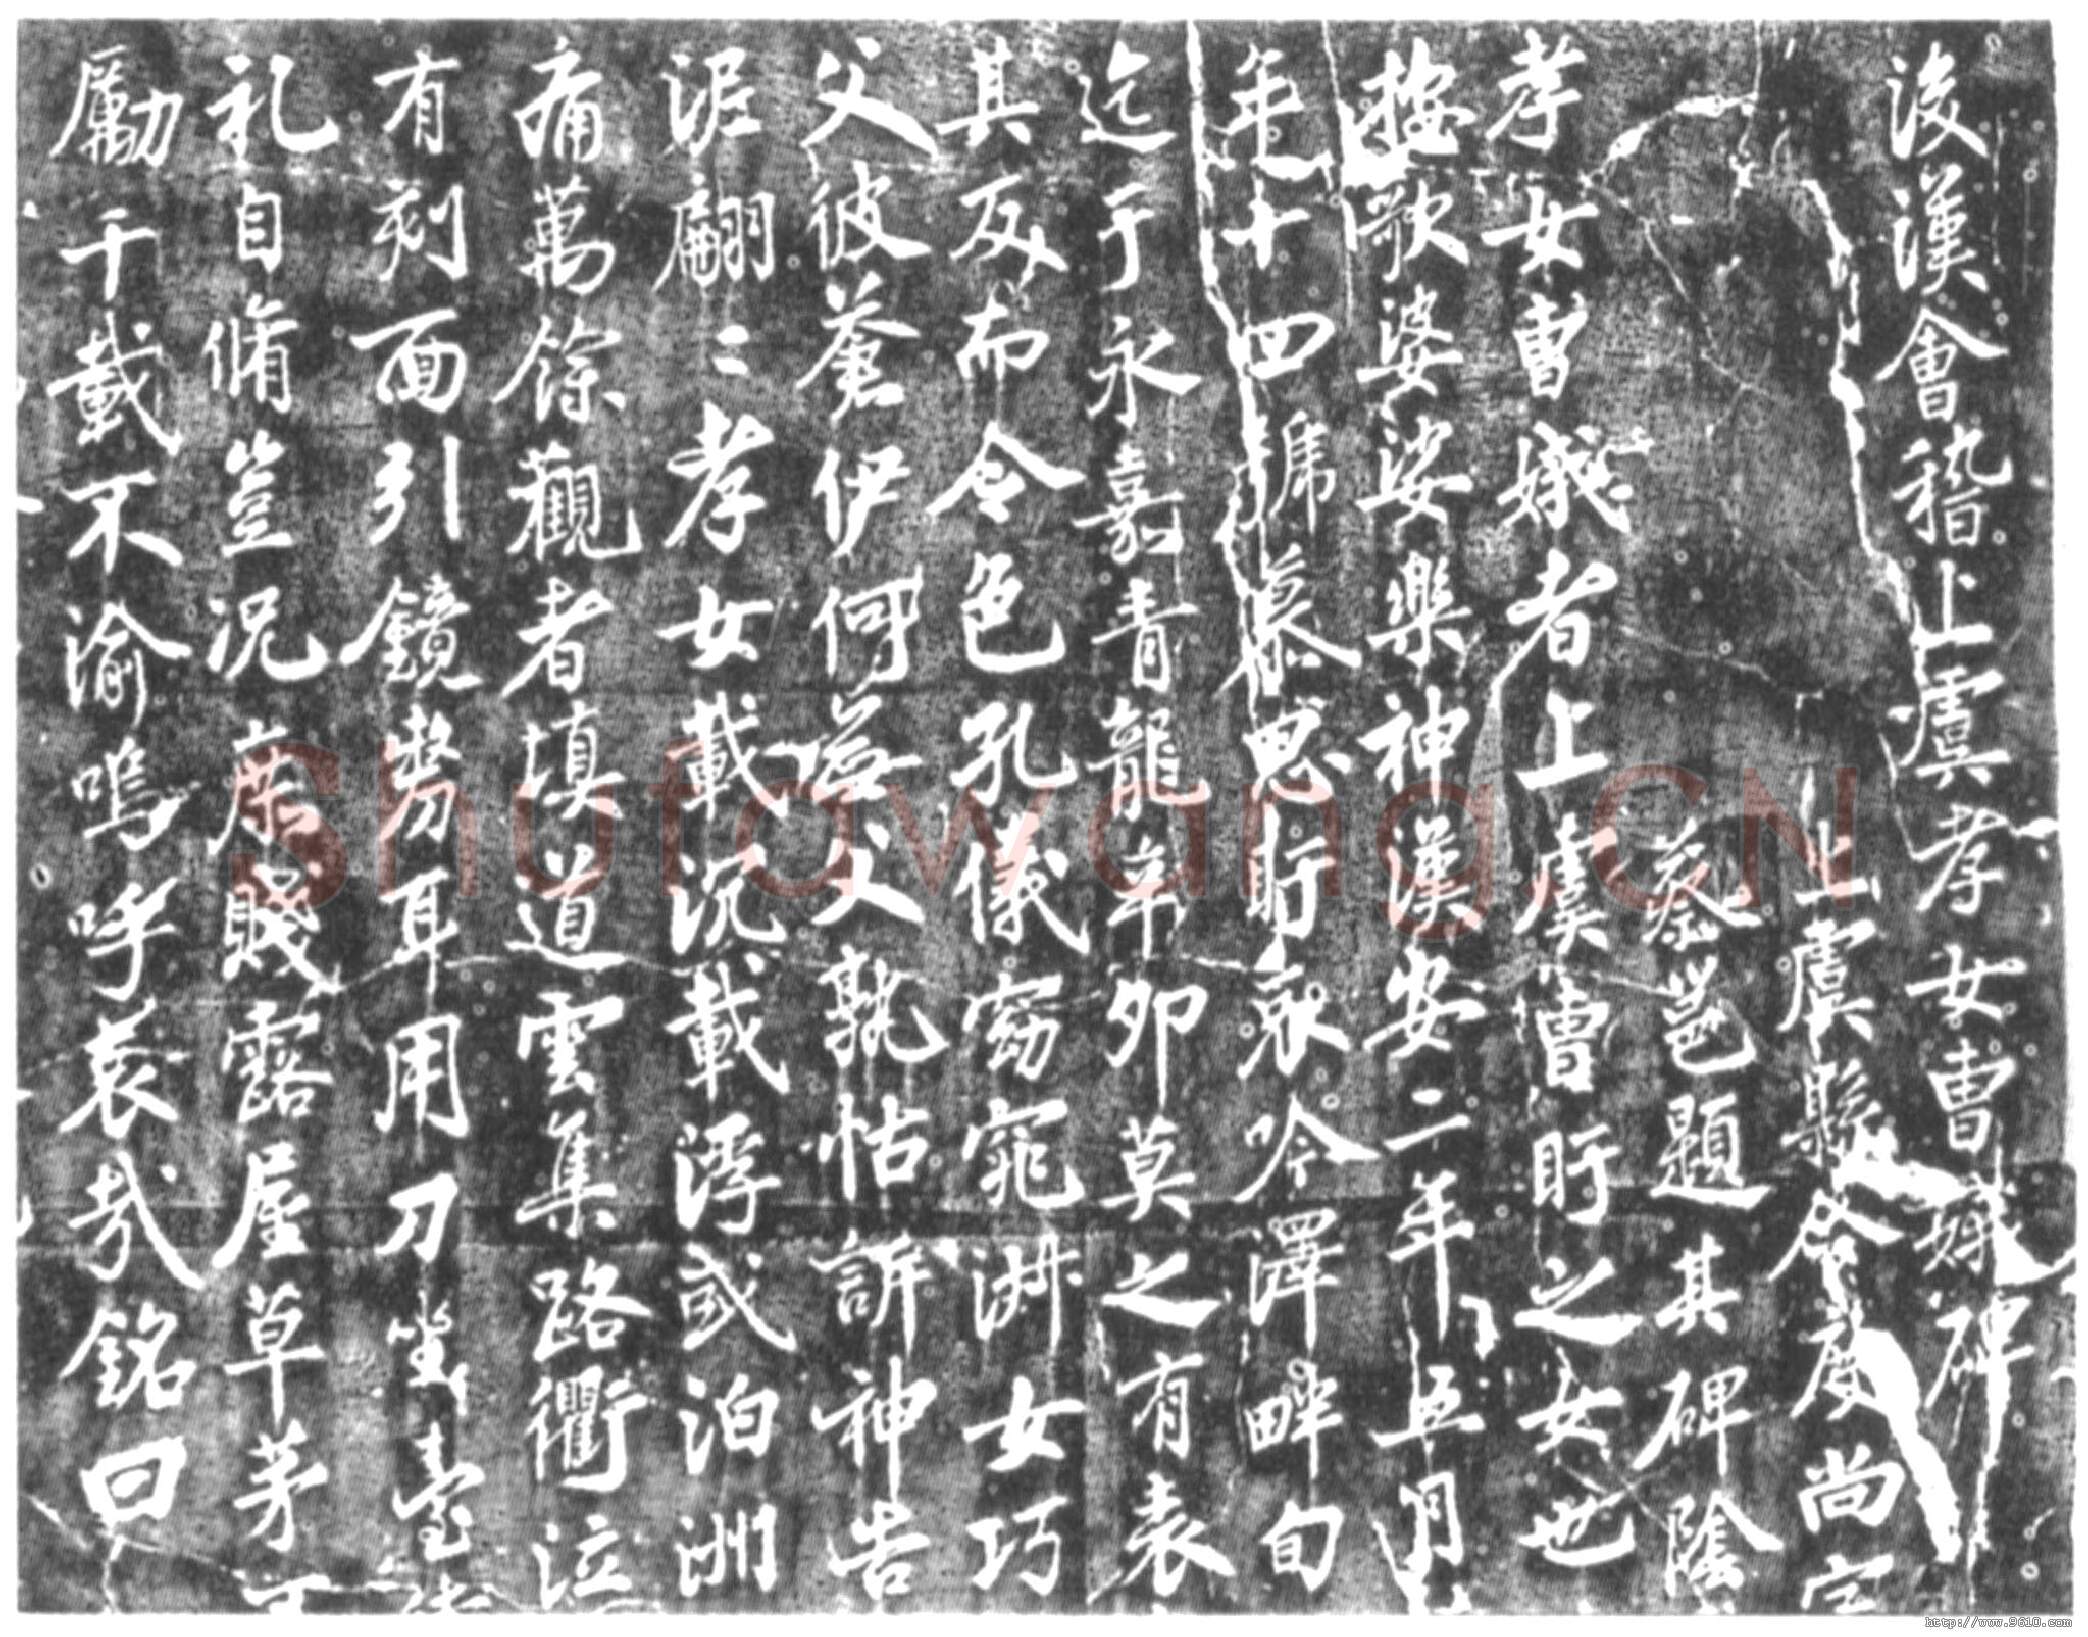 後漢會稽上虞孝女曹娥碑
上虞縣令度尚字
蔡邕題其碑陰
孝女曹娥者上虞曹盱之女也
按歌婆娑樂神漢安二年五月
年十四號慕思盱哀吟澤畔旬
迄于永嘉青龍辛卯莫之有表
其反而令色孔儀窈窕淑女巧
父彼蒼伊何無父孰怙訴神告
泥翩〻孝女載沉載浮或泊洲
痛萬餘觀者填道雲集路衢泣
有刻面引鏡剺耳用刀坐臺
礼自脩豈況庶賤露屋草茅
勵千載不渝嗚呼哀哉銘曰
Shufawang.CN
http://www.9610.com